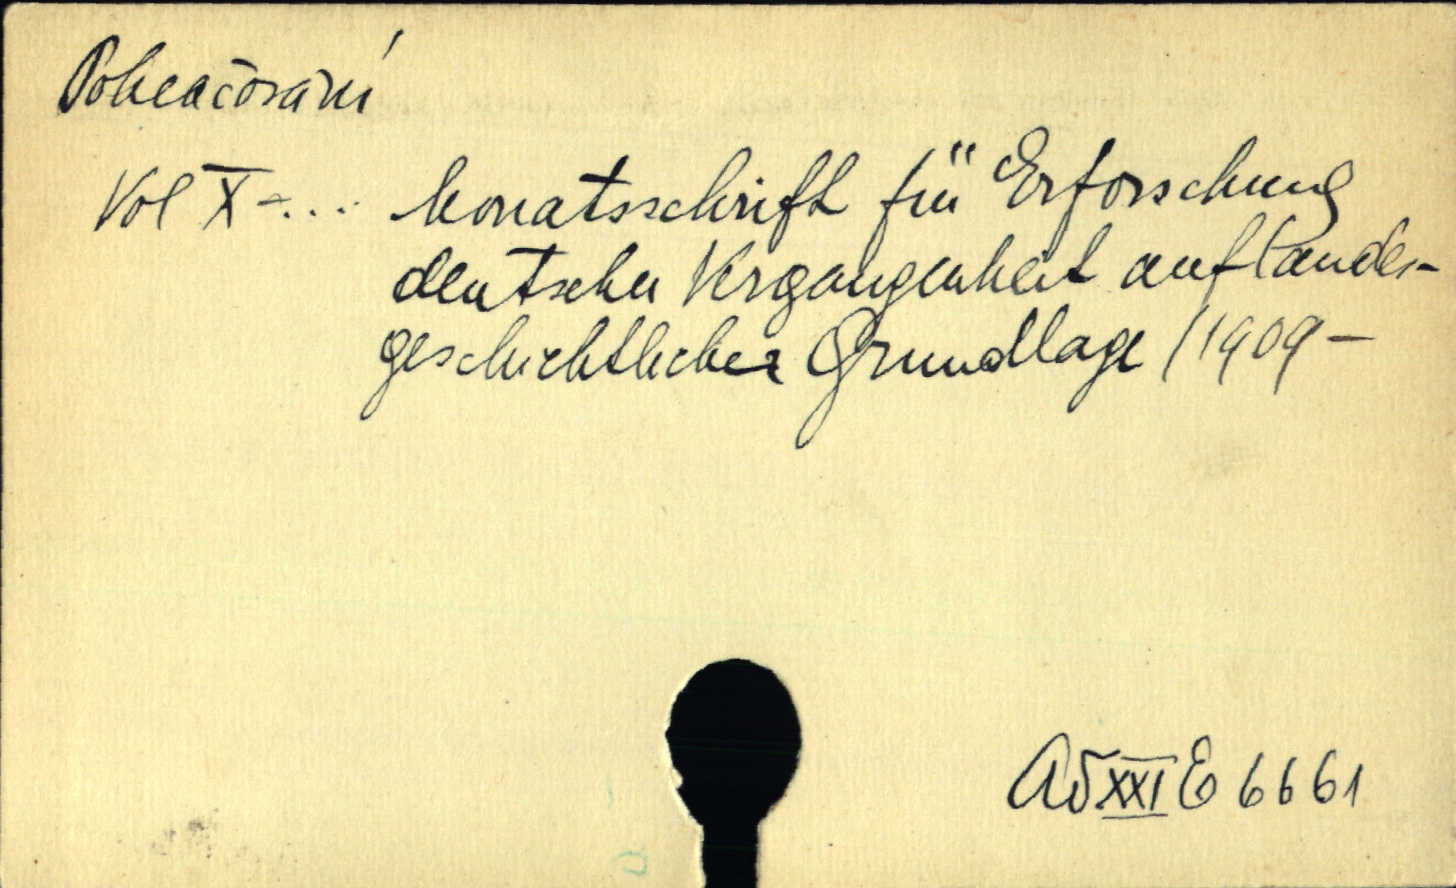 Pokračování
Vol X-... Monatsschrift für Erforschung
deutscher Vergangenheit auf landes-
geschichtlicher Grundlage /1909-
Ad XXI E 6661